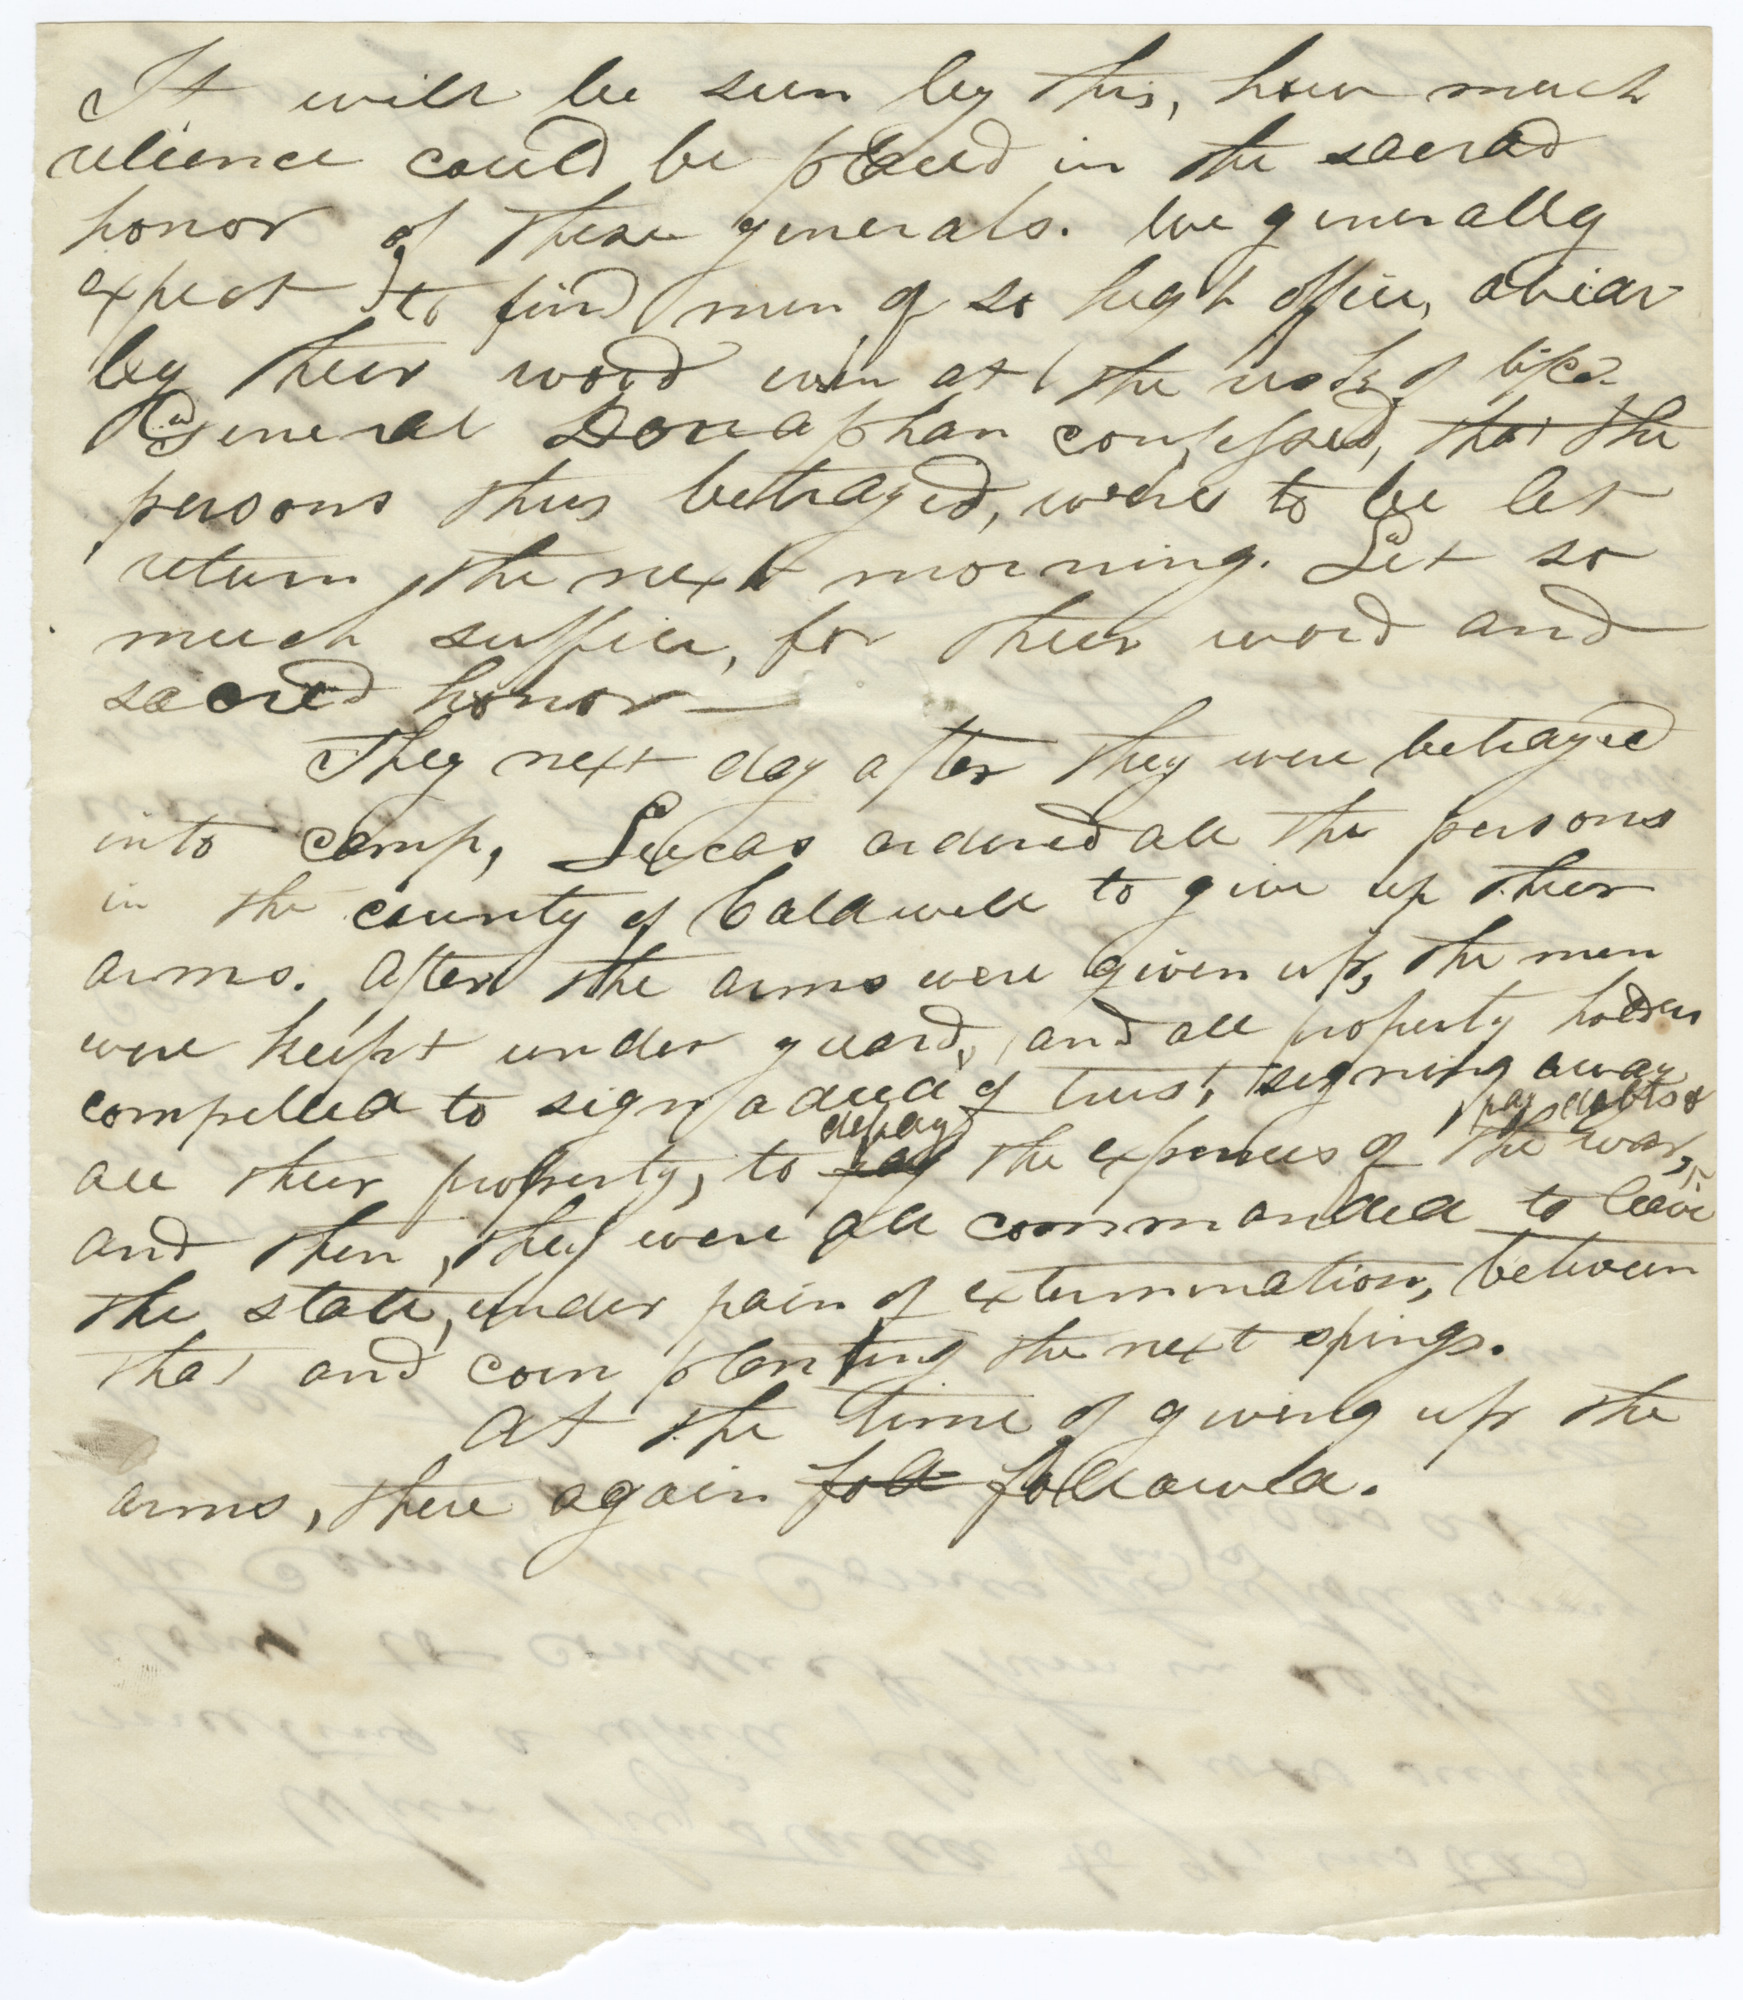 It will be seen by this, how much
relience could be placed in the sacred
honor of these generals. We generally
expect to find men of so hight office, abiar
by their word even at the risk of life.
General Donaphan confessed, that the
persons thus betrayed, were to be let
return the next morning. Let so
much suffice, for their word and
sacred honor —
They next day after they were betrayed
into camp, Lucas ordered all the persons
in the county of Caldwell to give up their
arms. After the arms were given up, the men
were keept under guard, and all property holders
compelled to sign a deed of trust, signing away
all their property, to pay defray the expenses of the war, pay debts &
and then, they were all commanded to leave
the state, under pain of extermination, between
that and corn planting the next spings.
At the time of giving up the
arms, there again foll followed.